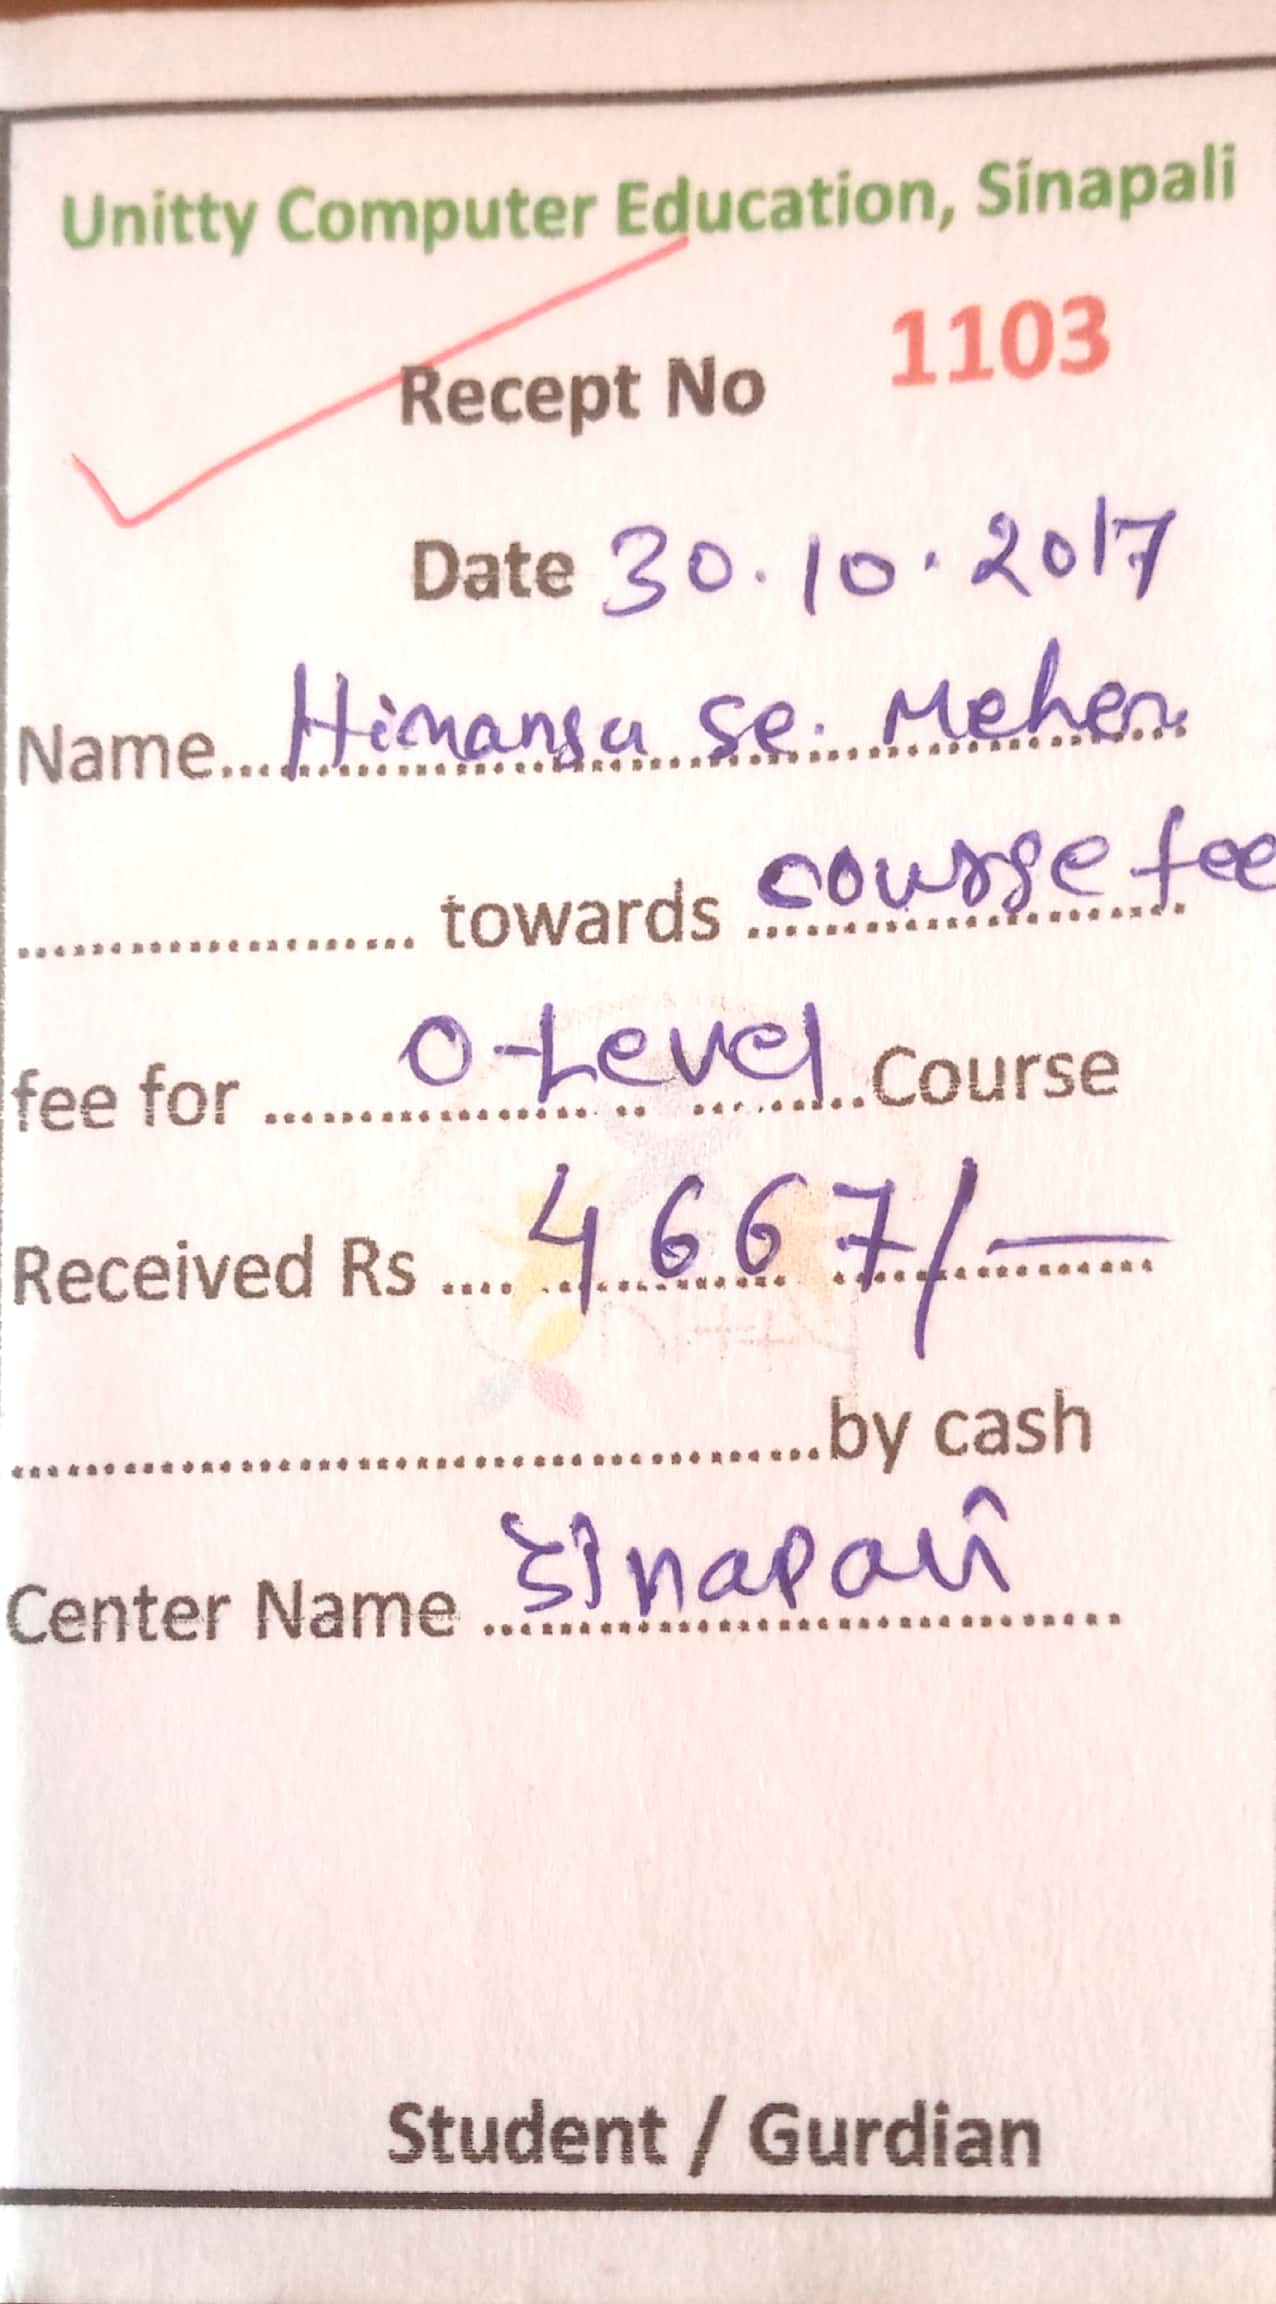 Unitty Computer Education, Sinapali
Recept No 1103
Date 30.10.2017
Name...Himansu se. Meher
.................... towards course fee
fee for ........ O-Level ........Course
Received Rs .... 4667/-
........................................by cash
Center Name Sinapali
Student / Gurdian